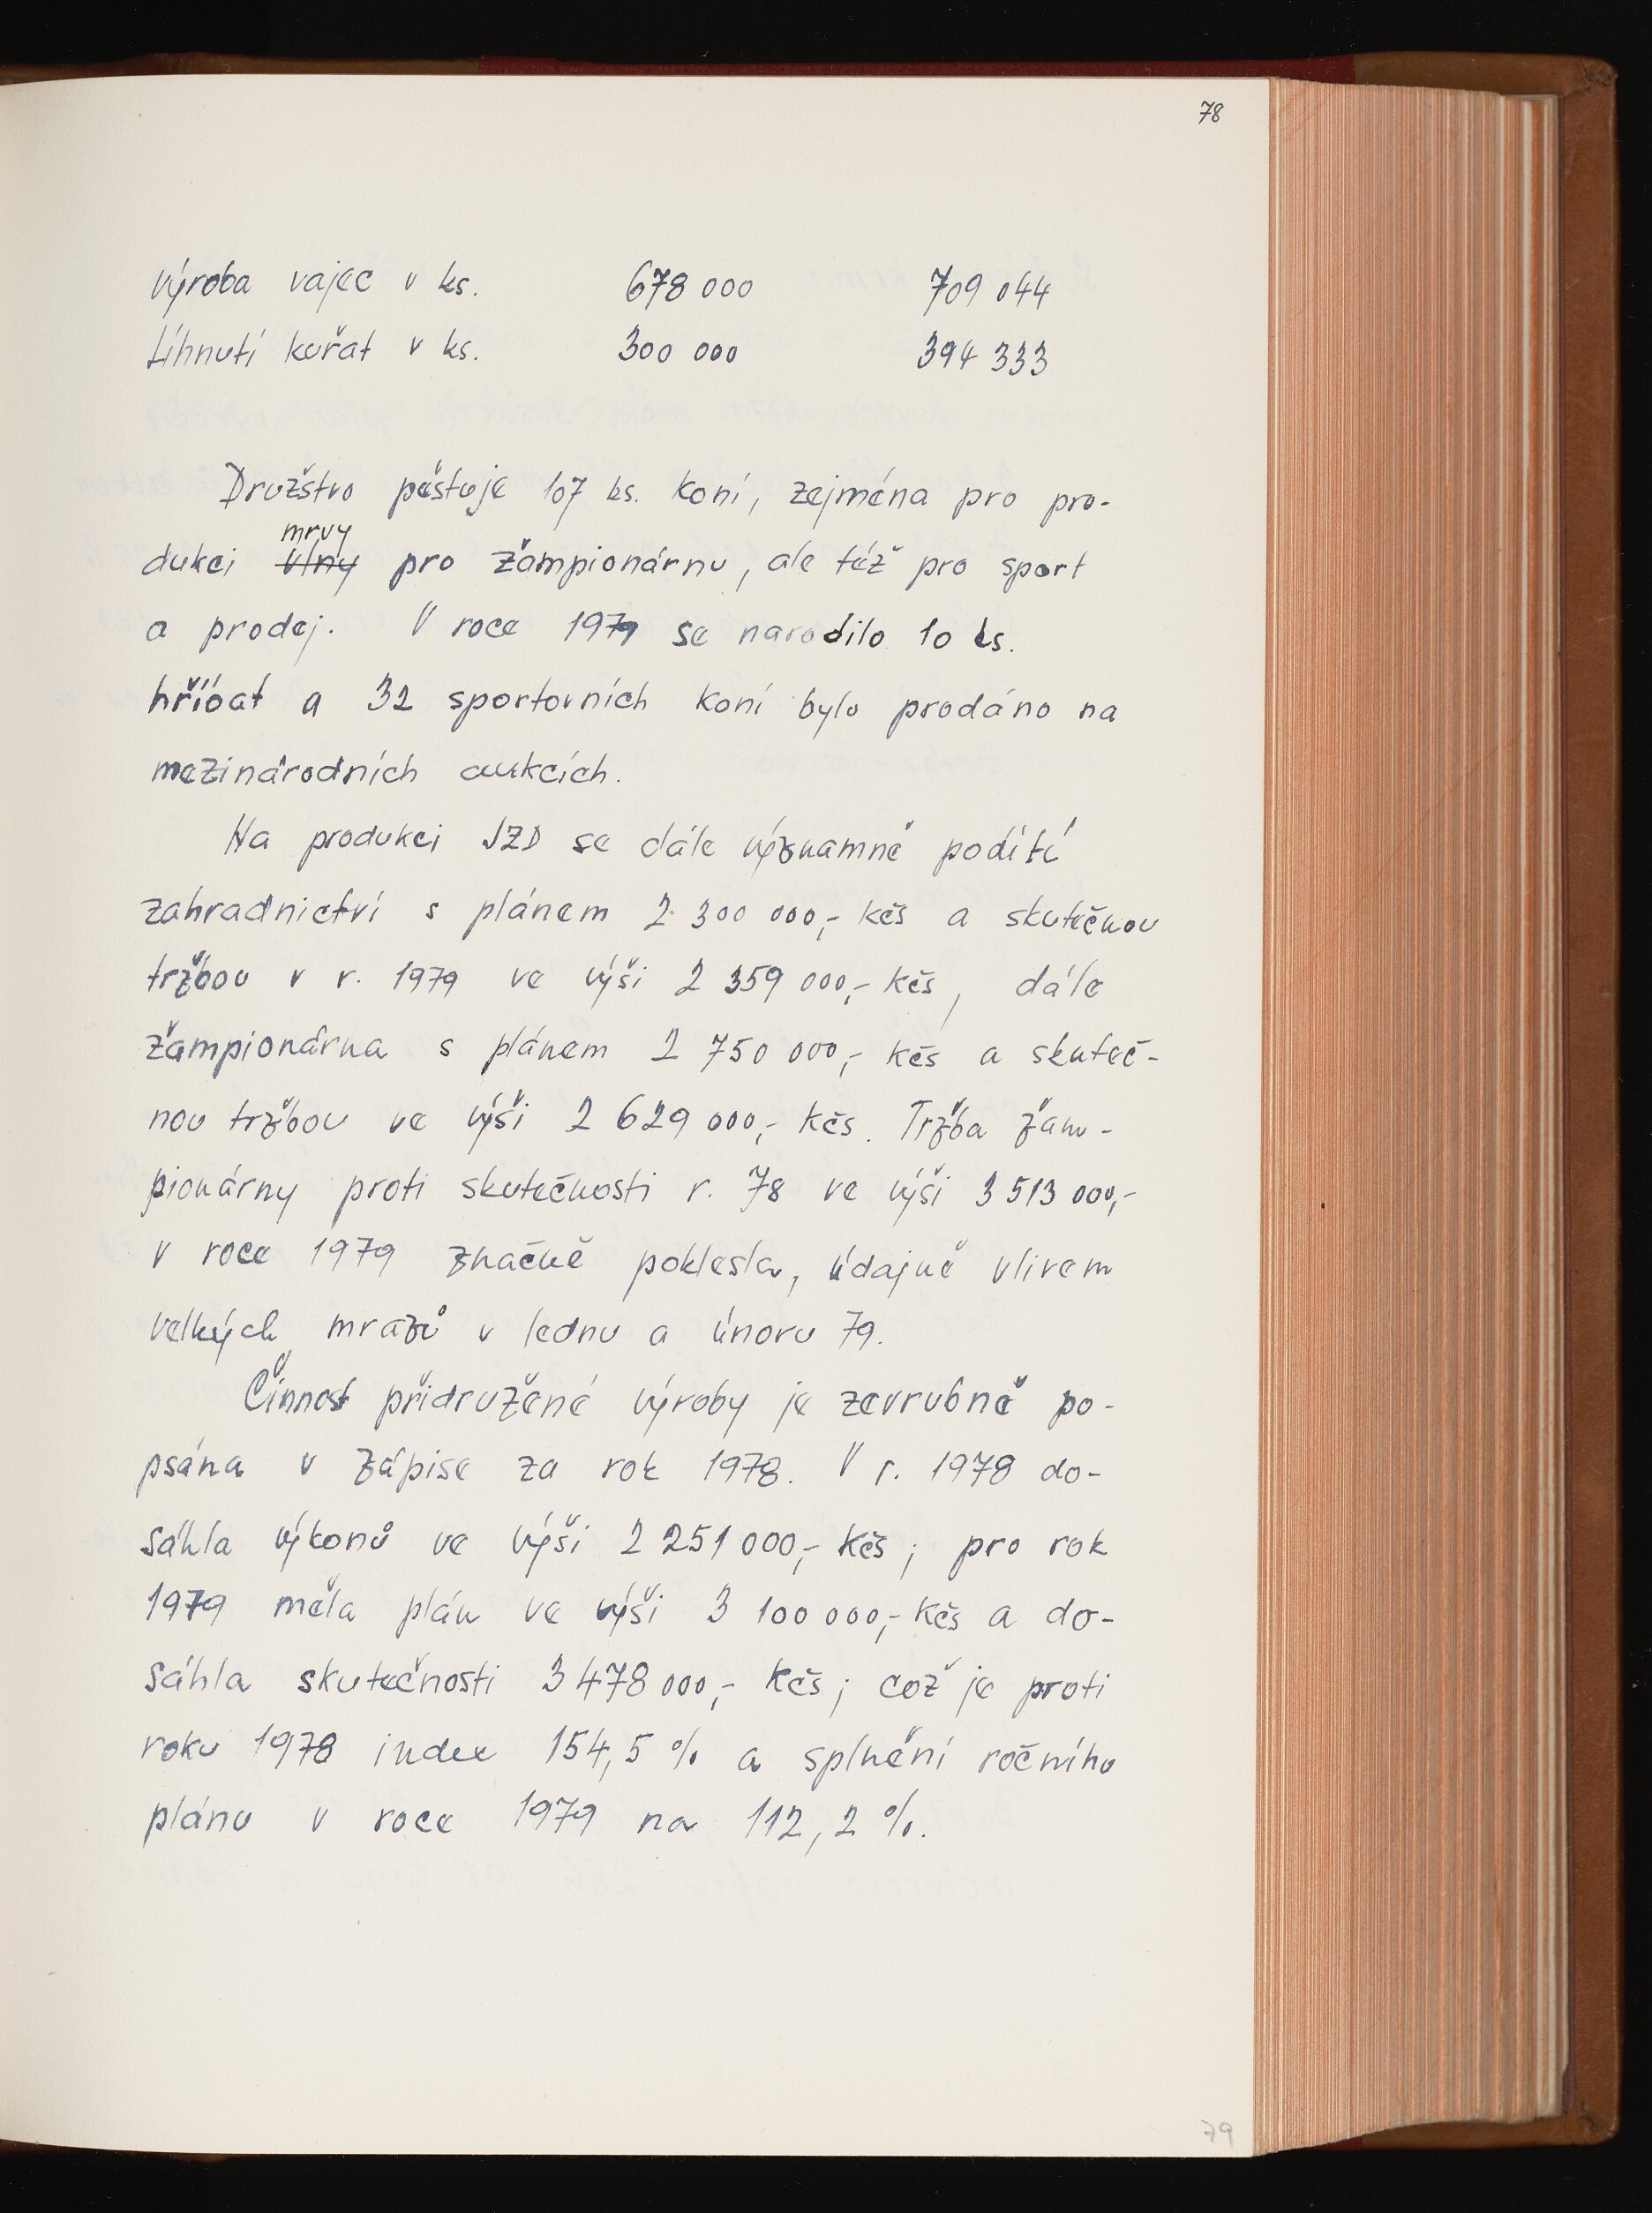 78
výroba vajec v ks. 678 000 709 044
Líhnutí kuřat v ks. 300 000 394 333
Družstvo pěstuje 107 ks. koní, zejména pro pro-
mrvy
dukci vlny pro žampionárnu, ale též pro sport
a prodej. V roce 1979 se narodilo 10 ks.
hříbat a 32 sportovních koní bylo prodáno na
mezinárodních aukcích.
Na produkci JZD se dále významně podílí
zahradnictví s plánem 2 300 000,- kčs a skutečnou
tržbou v r. 1979 ve výši 2 359 000,- kčs, dále
žampionárna s plánem 2 750 000,- kčs a skuteč-
nou tržbou ve výši 2 629 000,- kčs. Tržba žam-
pionárny proti skutečnosti r. 78 ve výši 3 513 000,-
v roce 1979 značně poklesla, údajně vlivem
velkých mrazů v lednu a únoru 79.
Činnost přidružené výroby je zevrubně po-
psána v zápise za rok 1978. V r. 1978 do-
sáhla výkonů ve výši 2 251 000,- kčs; pro rok
1979 měla plán ve výši 3 100 000,- kčs a do-
sáhla skutečnosti 3 478 000,- kčs; což je proti
roku 1978 index 154,5 % a splnění ročního
plánu v roce 1979 na 112,2 %.
79